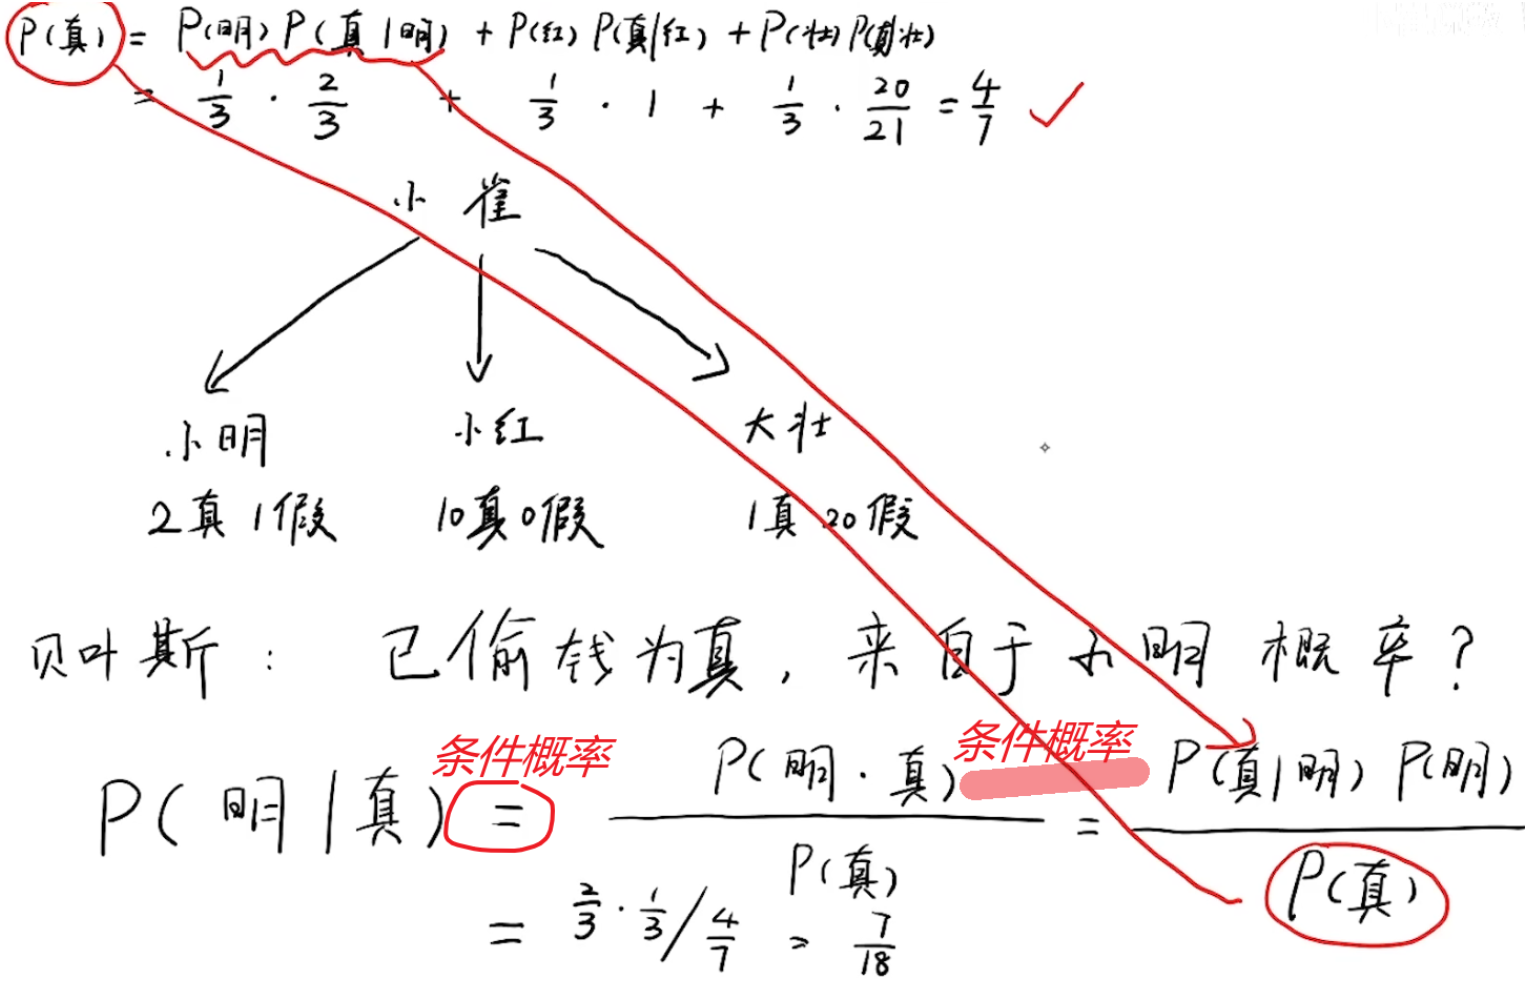 P(真) = P(明) P(真|明) + P(红) P(真|红) + P(壮) P(真|壮)
= 1/3 · 2/3 + 1/3 · 1 + 1/3 · 20/21 = 4/7 ✓
小雀
小明 小红 大壮
2真1假 10真0假 1真20假
贝叶斯: 已偷钱为真, 来自于小明概率?
条件概率 条件概率
P(明|真) = P(明·真) / P(真) = P(真|明) P(明) / P(真)
= 2/3 · 1/3 / 4/7 = 7/18